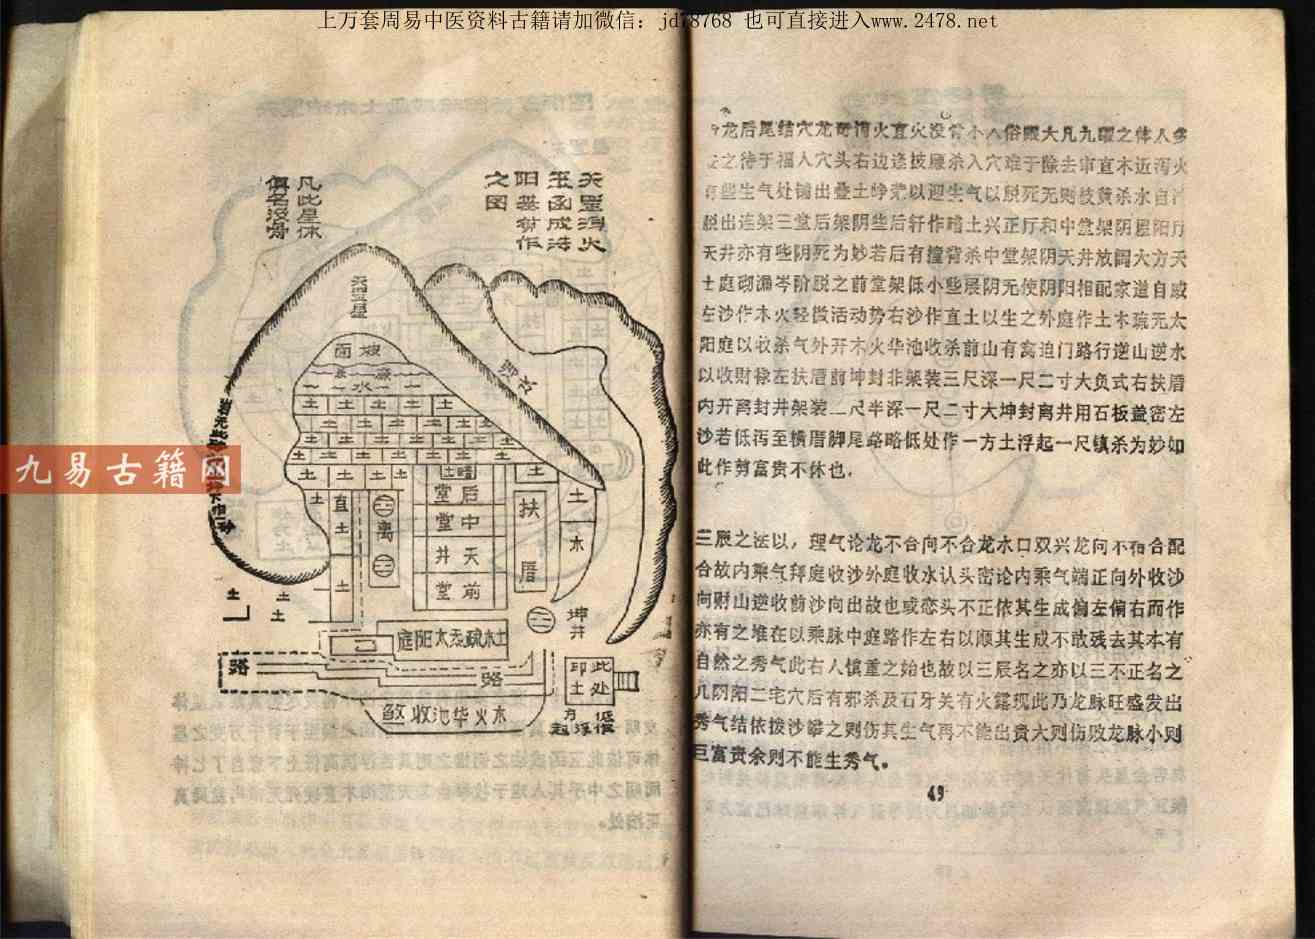 上万套周易中医资料古籍请加微信：jd78768 也可直接进入www.2478.net
九易古籍网
天罡泻火
玉函成海
阳基剪作
之图
凡此星休
俱名没骨
天罡星
坡面
水
土 土 土 土 土
后堂
中堂
天井
前堂
扶厝
直土
离
土
木
坤井
土木疏 太阳庭
路
路
木火华池收煞
此处印土
低做方浮起
龙后尾结穴龙 泻火直火没骨 俗眼大凡九曜之体人多
之待于福人穴头右边逢披廉杀入穴难于除去审直木近泻火
有些生气处铺出叠土 以迎生气以脱死无则披黄杀水自
脱出连架三堂后架阴些后轩作 土兴正厅和中堂架阴 阳厅
天井亦有些阴死为妙若后有撞背杀中堂架阴天井放阔大方天
土庭砌漏岑阶脱之前堂架低小些展阴无使阴阳相配家道自
左沙作木火轻微活动势右沙作直土以生之外庭作土木疏无太
阳庭以收杀气外开木火华池收杀前山有窝迫门路行逆山逆水
以收财禄左扶厝前坤封非架装三尺深一尺二寸大负式右扶厝
内开离封井架装二尺半深一尺二寸大坤封离井用石板盖密左
沙若低泻至横厝脚尾路略低处作一方土浮起一尺镇杀为妙如
此作剪富贵不休也．
三辰之法以，理气论龙不合向不合龙水口双兴龙向不相合配
合故内乘气拜庭收沙外庭收水认头密论内乘气端正向外收沙
向财山逆收前沙向出故也或恋头不正依其生成偏左偏右而作
亦有之堆在以乘脉中庭路作左右以顺其生成不敢残去其本有
自然之秀气此右人慎重之始也故以三辰名之亦以三不正名之
几阴阳二宅穴后有邪杀及石牙关有火露现此乃龙脉旺盛发出
秀气结依拨沙 之则伤其生气再不能出贵大则伤败龙脉小则
巨富贵余则不能生秀气。
49